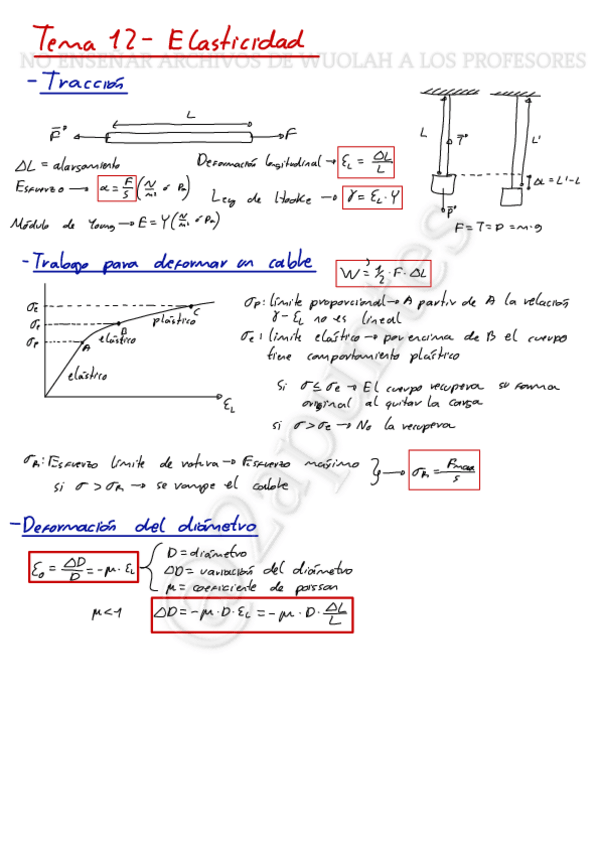 Tema 12 - Elasticidad
NO ENSEÑAR ARCHIVOS DE WUOLAH A LOS PROFESORES
- Tracción
L
F F
L T L'
ΔL = L'-L
P
F = T = P = m·g
ΔL = alargamiento
Deformación longitudinal → εL = ΔL/L
Esfuerzo → α = F/S (N/m² ó Pa)
Ley de Hooke → γ = εL · Y
Módulo de Young → E = Y (N/m² ó Pa)
- Trabajo para deformar un cable
W = 1/2 · F · ΔL
σe
σe
σp
A
B
C
elástico
elástico
plástico
εL
σp: límite proporcional → A partir de A la relación
γ - εL no es lineal
σe: límite elástico → por encima de B el cuerpo
tiene comportamiento plástico
Si σ ≤ σe → El cuerpo recupera su forma
original al quitar la carga
si σ > σe → No la recupera
σR: Esfuerzo límite de rotura → Esfuerzo máximo
si σ > σR → se rompe el cable
} → σR = Fmax/S
- Deformación del diámetro
εD = ΔD/D = -μ · εL
D = diámetro
ΔD = variación del diámetro
μ = coeficiente de poisson
μ<1
ΔD = -μ · D · εL = -μ · D · ΔL/L
@2apuntes